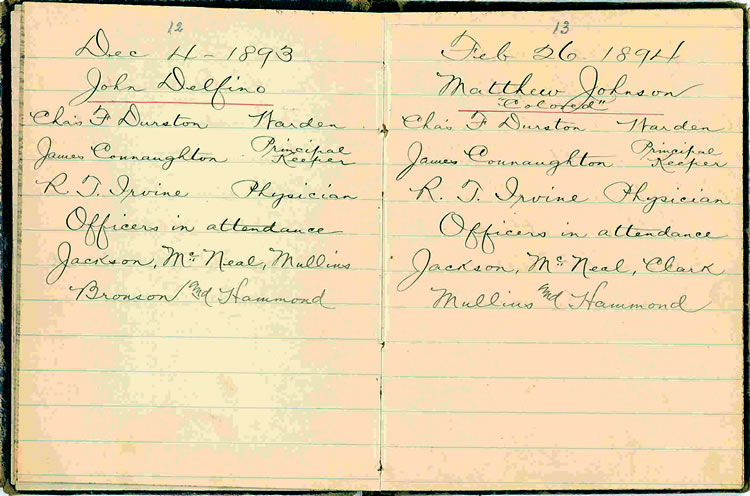 12
Dec 4 - 1893
John Delfino
Chas F Durston Warden
James Connaughton Principal Keeper
R. T. Irvine Physician
Officers in attendance
Jackson, Mc Neal, Mullins
Bronson and Hammond
13
Feb 26 1894
Matthew Johnson
"Colored"
Chas F Durston Warden
James Connaughton Principal Keeper
R. T. Irvine Physician
Officers in attendance
Jackson, Mc Neal, Clark
Mullins and Hammond